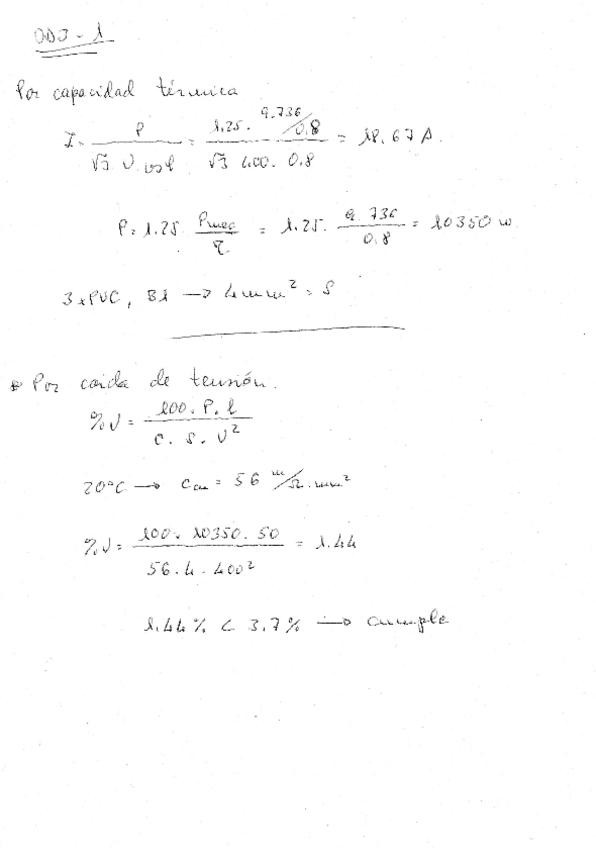 003-1
Por capacidad térmica
I = P / (√3 U cosφ) = (1.25 · 9.736/0.8) / (√3 400 · 0.8) = 18.67 A.
P = 1.25 Pmec / η = 1.25 · 9.736 / 0.8 = 10350 w
3xPVC, B1 → 4mm² = S
Por caida de tensión.
%U = 100 · P · l / (C · S · U²)
20°C → Ccu = 56 m/Ω·mm²
%U = 100 · 10350 · 50 / (56 · 4 · 400²) = 1.44
1.44% < 3.7% → cumple